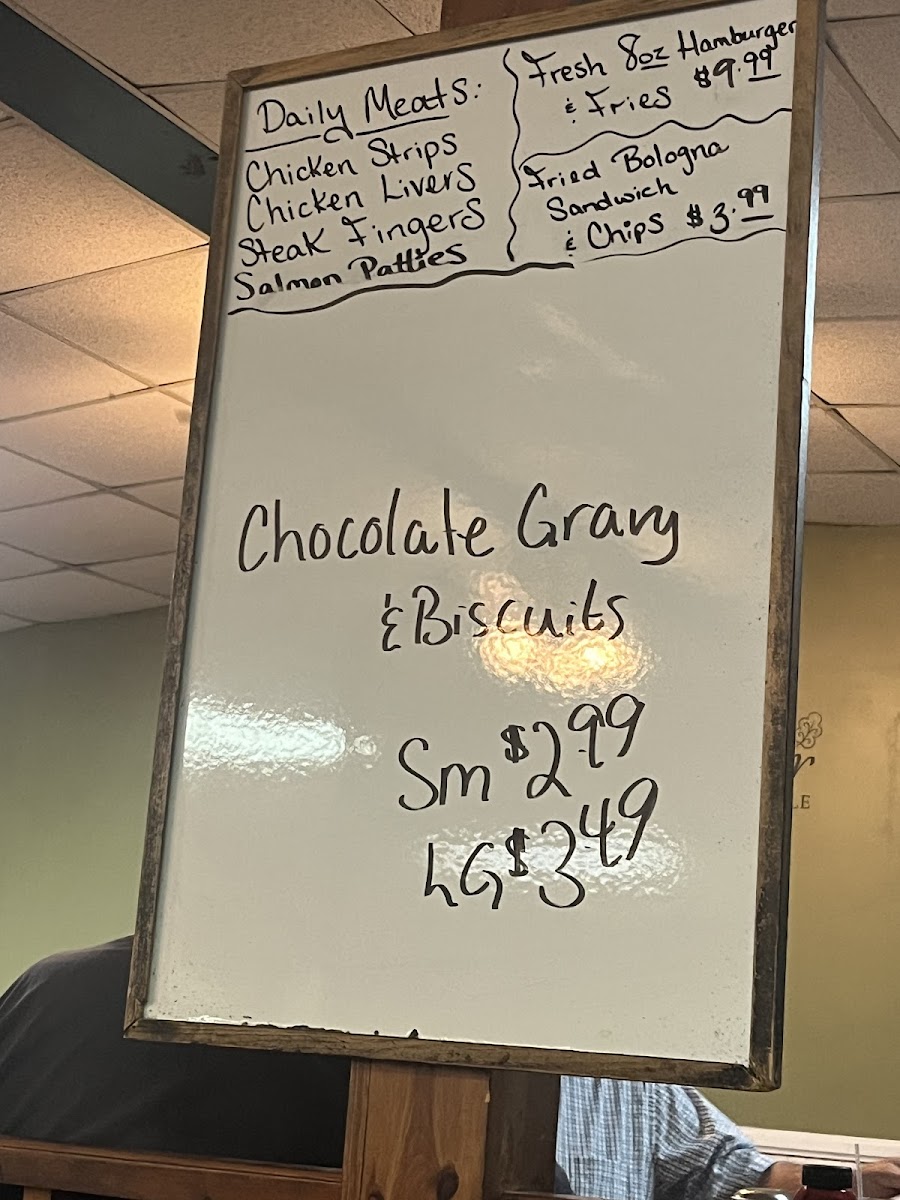 Daily Meats:
Chicken Strips
Chicken Livers
Steak Fingers
Salmon Patties
Fresh 8oz Hamburger
& Fries $9.99
Fried Bologna
Sandwich
& Chips $3.99
Chocolate Gravy
& Biscuits
Sm $2.99
LG $3.49